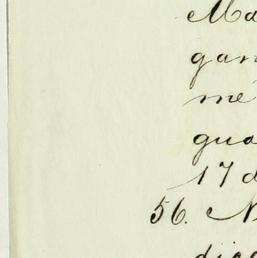 Ma
gan
me
gua
17 d
56. N
diga